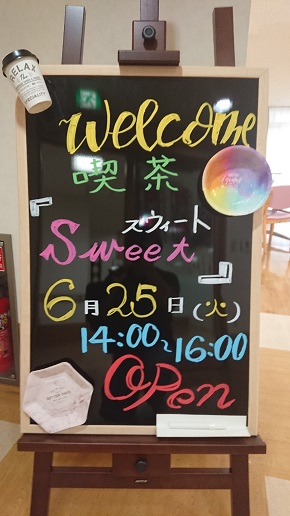 RELAX
Welcome
喫茶
スウィート
「Sweet」
6月25日(火)
14:00~16:00
OPen